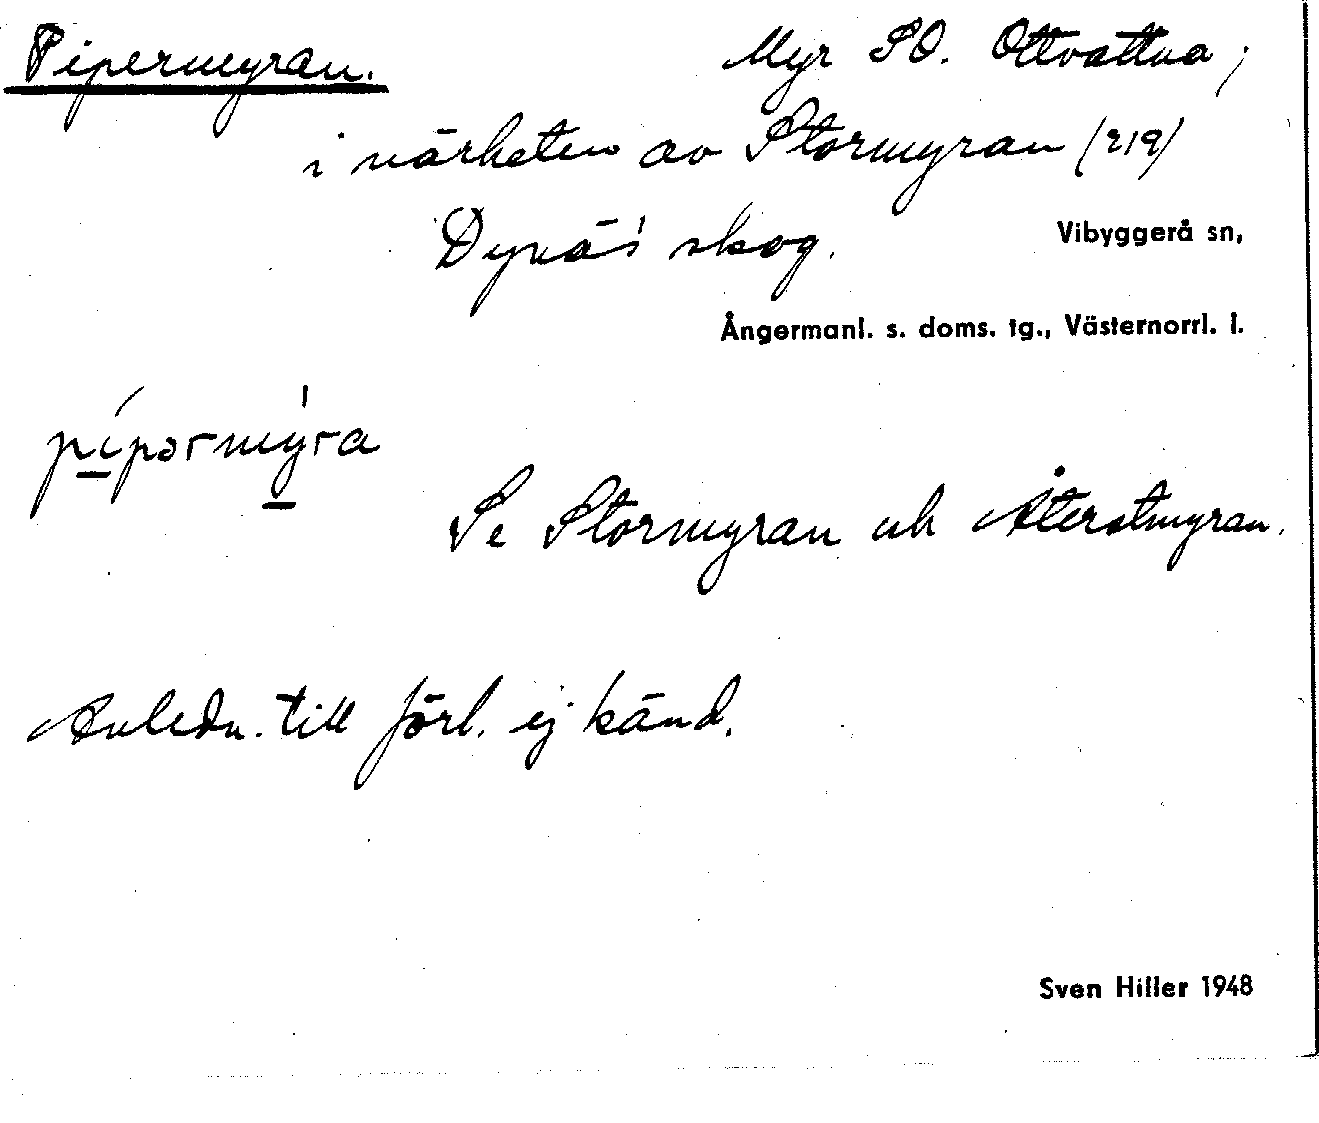 Pipermyran. Myr SO. Ottvattna;
i närheten av Stormyran (219)
Dynäs skog.
Vibyggerå sn,
Ångermanl. s. doms. tg., Västernorrl. l.
pípərmýra
Se Stormyran och Återstmyran.
Anledn. till förl. ej känd.
Sven Hiller 1948